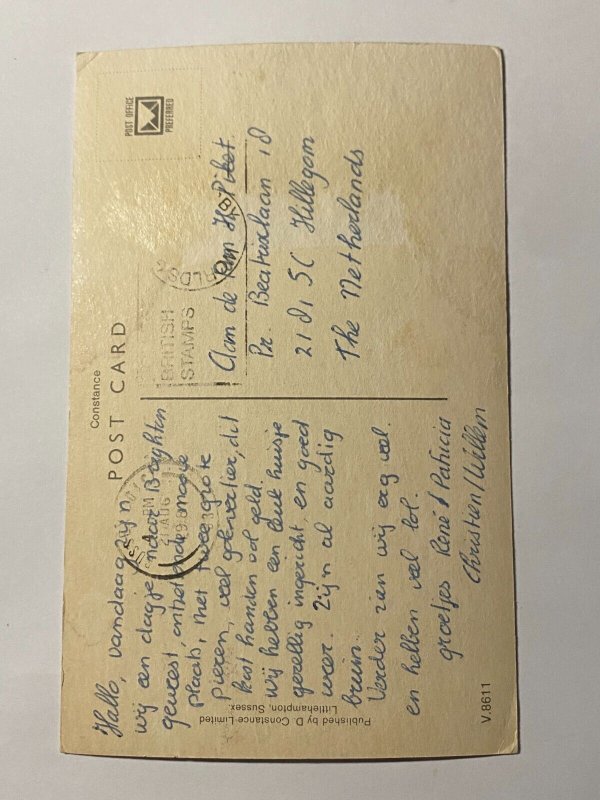 Constance
POST CARD
POST OFFICE
PREFERRED
BRITISH
STAMPS
PM
AUG
198
Hallo, vandaag zijn
wij een dagje naar Brighton
geweest,
plaats, met twee grote
pieren, veel vertier, dit
kost handen vol geld.
wij hebben een leuk huisje
gezellig ingericht, en goed
weer. Zijn al aardig
bruin.
Verder zien wij erg veel
en hebben veel lol.
groetjes René / Patricia
Christien / Willem
Aan de Fam H. Piket
Pr. Beatrixlaan 18
2181 SC Hillegom
The Netherlands
Published by D. Constance Limited
Littlehampton, Sussex.
V.8611